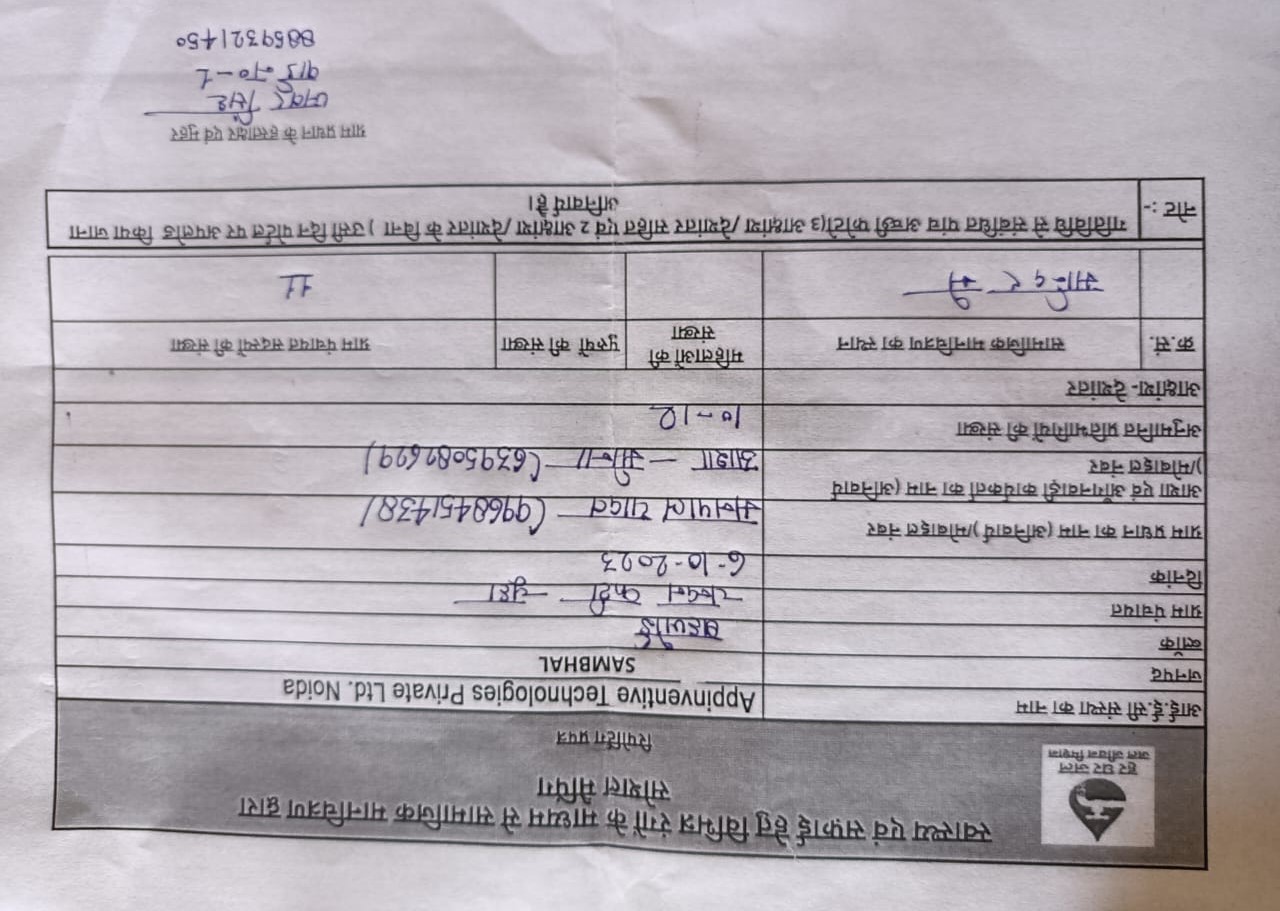 हर घर जल
जल जीवन मिशन
स्वास्थ्य एवं सफाई हेतु विभिन्न रंगों के माध्यम से सामाजिक मानचित्रण द्वारा
सोशल मैपिंग
रिपोर्टिंग प्रपत्र
आई.ई.सी संस्था का नाम Appinventive Technologies Private Ltd. Noida
जनपद SAMBHAL
ब्लॉक बहजोई
ग्राम पंचायत
दिनांक 6-10-2023
ग्राम प्रधान का नाम (अनिवार्य )/मोबाइल नंबर यादव (9968451438)
आशा एवं आँगनवाड़ी कार्यकर्ता का नाम (अनिवार्य
)/मोबाइल नंबर आशा - (6395089699)
अनुमानित प्रतिभागियों की संख्या 10-12
आक्षांश- देशांतर
क्र.सं. सामाजिक मानचित्रण का स्थान महिलाओं की संख्या पुरुषों की संख्या ग्राम पंचायत सदस्यों की संख्या
मन्दिर में 11
नोट :- गतिविधि से संबंधित पांच अच्छी फोटो(3 आक्षांश /देशांतर सहित एवं 2 आक्षांश /देशांतर के बिना ) उसी दिन पोर्टल पर अपलोड किया जाना
अनिवार्य है।
ग्राम प्रधान के हस्ताक्षर एवं मुहर
सिंह
वार्ड न०-1
8859321450